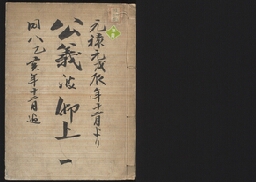 元禄元戊辰年十一月より
公義被仰上 一
同八乙亥年十二月迄